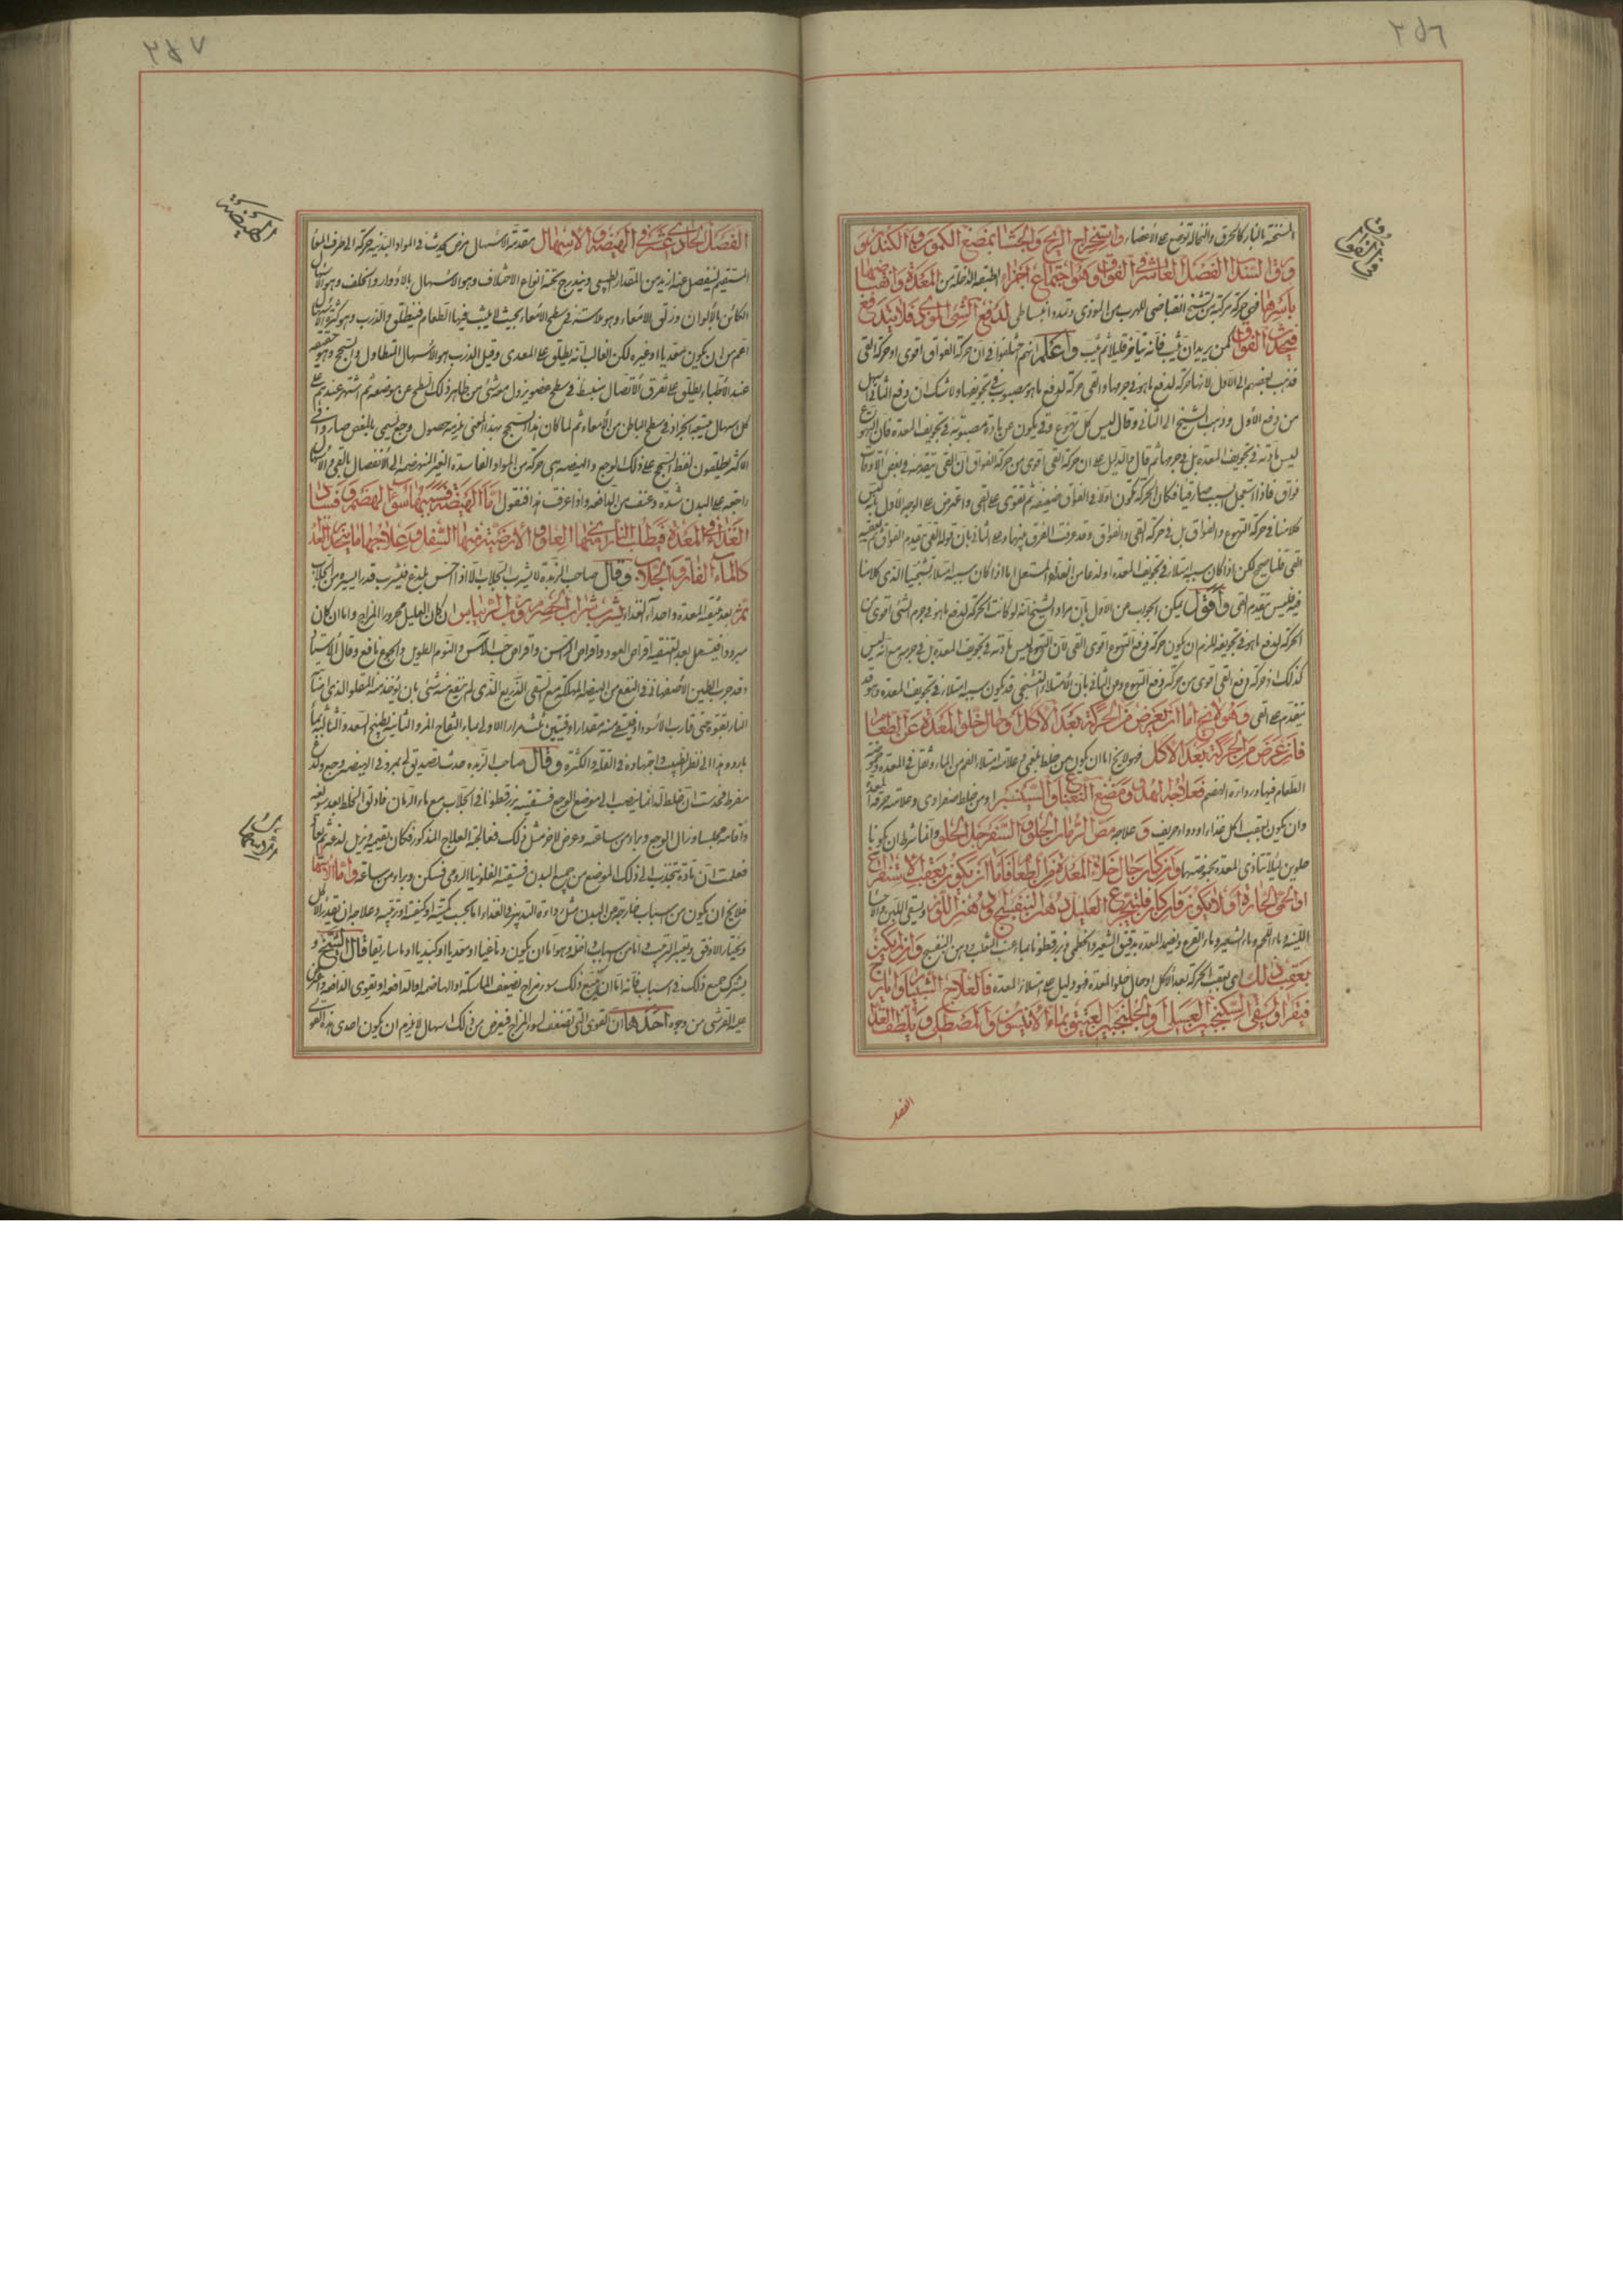 ٢٥٦
في الفواق
المسخنة بالنار كالخرق والنخالة توضع على الأعضاء واستخراج الريح والجشاء بمضغ الكمون والكندر و
ورق السذاب الفصل العاشر في الفواق وهو اجتماع اجزاء الطبقة الداخلة من المعدة وانقباضها
باسرها فهي حركة مركبة من تشنج انقباضي للهرب من الموذي وتمدد انبساطي لدفع الشئ الموذي فلا يندفع
فيحدث الفواق كمن يريد ان يثب فانه يتأخر قليلا ثم يثب واعلم انهم اختلفوا في ان حركة الفواق اقوى او حركة القي
فذهب بعضهم الى الاول لانها حركة لدفع ما هو في جرمها والقي حركة لدفع ما هو مصبوب في تجويفها ولا شك ان دفع الثاني اسهل
من دفع الأول وذهب الشيخ الى الثاني وقال ليس كل تهوع وقي يكون عن مادة مصبوبة في تجويف المعدة فان التهوع
ليس مادته في تجويف المعدة بل في جرمها ثم قال والدليل على ان حركة القي اقوى من حركة الفواق ان القي يتقدمه في بعض الأوقات
فواق فاذا استعجل لسبب صار قيا فكان الحركة تكون اولا في الفواق ضعيفة ثم تقوى على القي واعترض على الوجه الأول بان ليس
كلامنا في حركة التهوع والفواق بل في حركة القي والفواق وقد عرفت الفرق بينهما وعلى الثاني بان قوله القي يتقدم الفواق ثم يعقبه
القي فلنا صحيح لكن اذا كان سببه امتلاء في تجويف المعدة
فيه فليس يتقدم القي واقول يمكن الجواب عن الاول بان مراد الشيخ انه لو كانت الحركة لدفع ما هو في جرم الشئ اقوى من
الحركة لدفع ما هو في تجويفه للزم ان يكون حركة دفع التهوع اقوى القي لان التهوع ليس مادته في تجويف المعدة بل في جرمه مع انه ليس
كذلك اذ حركة دفع القي اقوى من حركة دفع التهوع وعن الثاني بان الامتلاء التشنجي قد يكون سببه امتلاء في تجويف المعدة وهو قد
يتقدم على القي وهو لا يخ اما ان يعرض من الحركة بعد الاكل او حال خلو المعدة عن الطعام
فان عرض من الحركة بعد الاكل فهو لا يخ اما ان يكون من خلط بلغمي وعلامته امتلاء الفم من الماء وثقل في المعدة وحموضة
الطعام فيها ورداءة الهضم فعلاجه الهدو ومضغ النعناع والسكنجبين او من خلط صفراوي وعلامته حرقة المعدة
وان يكون بعقب اكل غذاء او دواء حريف وعلاجه مص الرمان الحلو والسفرجل الحلو وانما شرط ان يكونا
حلوين لئلا يتأذى المعدة بحموضتهما وان كان حال خلاء المعدة من الطعام فاما ان يكون بعقب الاستفراغ
او الحمى الحارة او لا يكون فان كان فليتجرع العليل دهن البنفسج ودهن اللوز ويسقى اللبن والاحساء
اللينة وماء اللحم وماء الشعير وماء القرع وتضمد المعدة بدقيق الشعير والخطمي وبزر قطونا بماء عنب الثعلب ودهن البنفسج وان لم يكن
بعقب ذلك اي بعقب الحركة بعد الاكل او حال خلو المعدة فهو دليل على امتلاء المعدة فالعلاج الشبيار وايارج
فيقرا وليسقى السكنجبين العسلي او الجلنجبين العتيق بماء الانيسون والمصطكي ويلطف الغذاء
الفصل
٢٥٧
الهيضة
الفصل الحادي عشر في الهيضة والاسهال مقدمة الاسهال مرض يحدث في المواد البدنية حركة الى طرف المعاء
المستقيم لينفصل عنه ازيد من المقدار الطبيعي ويندرج تحته انواع الاختلاف وهو الاسهال بالادوار والخلف وهو الاسهال
الكائن بالألوان وزلق الامعاء وهو ملاسة في سطح الامعاء بحيث لا يلبث فيها الطعام فينطلق والذرب وهو كثرة الاسهال
اعم من ان يكون معديا او غيره لكن الغالب انه يطلق على المعدي وقيل الذرب هو الاسهال المتطاول والسحج وهو حقيقة
عند الاطباء يطلق على تفرق اتصال منبسط في سطح عضو يزول معه شئ من ظاهر ذلك السطح عن موضعه ثم اشتهر عندهم على
كل اسهال مستتبع انجراد في سطح الباطن من الامعاء ثم لما كان هذا السحج بهذا المعنى يلزمه حصول وجع يسمى بالمغص صار
الاكثر يطلقون لفظ السحج على ذلك الوجع والهيضة هي حركة من المواد الفاسدة الغير المنهضمة الى الانفصال بالقي والاسهال
راجعة على البدن بشدة وعنف من الدافعة واذا عرفت هذا فنقول اما الهيضة فسببها سوء الهضم وفساد
الغذاء في المعدة فيطلب النارى منها العلو الأرضى منها السفل وعلاجها ما يحدر الغذاء
كالماء الفاتر والجلاب وقال صاحب الزبدة لا يشرب الجلاب الا اذا احس بلدغ فيشرب قدرا يسيرا من الجلاب
ثم بعد تنقية المعدة واحدار الغذاء يشرب شراب الحصرم ورب الريباس ان كان العليل محرور المزاج واما ان كان
مبرودا فيستعمل بعد التنقية اقراص العود واقراص وافراص حب الآس والنوم الطويل والجوع نافع وقال الاستاد
وقد جرب الطين الاصفهاني في النفع من الهيضة المهلكة مع القي الذريع الذي لم ينفع منه شئ بان يؤخذ منه المقلو الذي
النار بقوة حتى قارب الاسوداد فيسقى منه مقدار اوقيتين ثلث مرار الاولى بماء التفاح المز والثانية بطبيخ السعد والثالثة بماء
بارد وهذا الى نظر الطبيب واجتهاده في القلة والكثرة وقال صاحب الزبدة حدث لصديق لي مبرود في الهيضة وجع ولذع
مفرط فحدست ان خلطا لذاعا ينصب الى موضع الوجع فسقيته بزر قطونا في الجلاب مع ماء الرمان
فعلمت ان مادة تنجذب الى ذلك الموضع من جميع البدن فسقيته الفلونيا الرومي فسكن وبراء من ساعته واما الاسهال
فلا يخ ان يكون من اسباب خارجة عن البدن مثل رداءة التدبير في الغذاء اما بحسب كميته او كيفيته او ترتيبه وعلاجه ان يقدر الاكل
ويختار الاوفق ويعتبر الترتيب واما من اسباب داخلة وهو اما ان يكون دماغيا او معديا او كبديا او ماساريقا قال الشيخ و
يشترك جميع ذلك في اسباب فانه اما ان يتبع ذلك سوء مزاج يضعف الماسكة او الهاضمة او الدافعة او يقوى الدافعة واعترض
عليه القرشي من وجوه احدها ان القوى التي تضعف لسوء المزاج فيعرض من ذلك اسهال لا يلزم ان يكون احدى هذه القوى